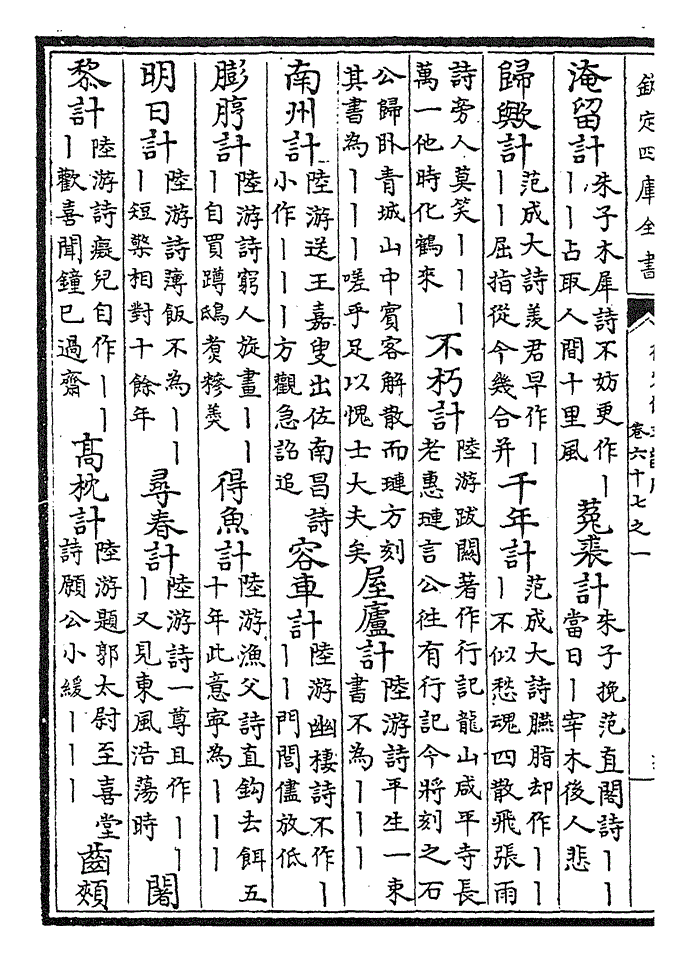 欽定四庫全書
卷六十七之一
淹留計
朱子木犀詩不妨更作丨
丨丨占取人間十里風
菟裘計
朱子挽范直閣詩丨丨
當日丨宰木後人悲
歸歟計
范成大詩羨君早作丨
丨丨屈指從今幾合并
千年計
范成大詩臙脂却作丨丨
丨不似愁魂四散飛張雨
詩旁人莫笑丨丨丨
萬一他時化鶴來
不朽計
陸游跋關著作行記龍山咸平寺長
老惠璉言公往有行記今將刻之石
公歸卧青城山中賓客解散而璉方刻
其書為丨丨丨嗟乎足以愧士大夫矣
屋廬計
陸游詩平生一束
書不為丨丨丨
南州計
陸游送王嘉叟出佐南昌詩
小作丨丨丨方觀急詔追
容車計
陸游幽棲詩不作丨
丨丨門閭儘放低
膨脝計
陸游詩窮人旋畫丨丨
丨自買蹲鴟煑糝羮
得魚計
陸游漁父詩直鈎去餌五
十年此意寧為丨丨丨
明日計
陸游詩薄飯不為丨丨
丨短檠相對十餘年
尋春計
陸游詩一尊且作丨丨
丨又見東風浩蕩時
闍
黎計
陸游詩癡兒自作丨丨
丨歡喜聞鐘已過齋
高枕計
陸游題郭太尉至喜堂
詩願公小緩丨丨丨
齒頰